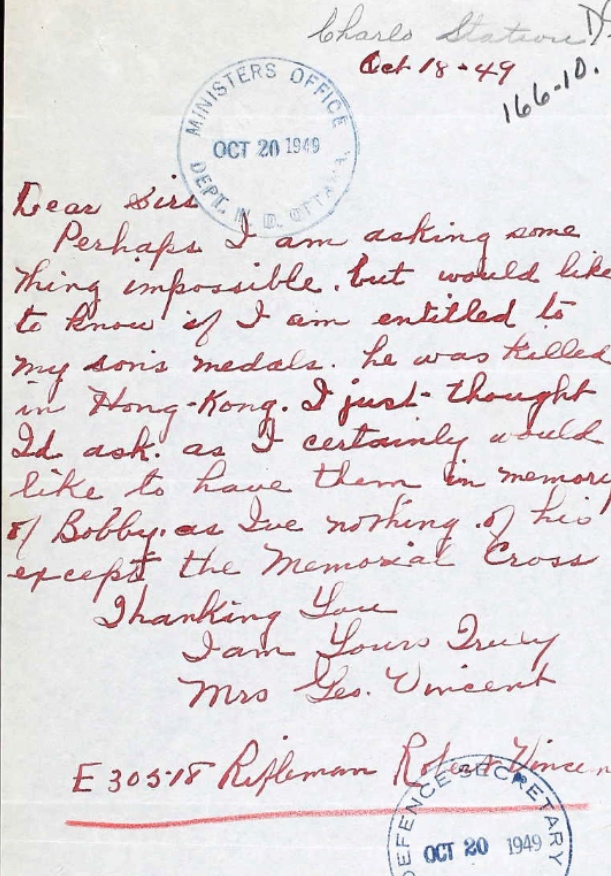 Charlo Station
Oct-18-49
166-10.
MINISTERS OFFICE
OCT 20 1949
DEPT. N. D. OTTAWA
Dear Sirs
Perhaps I am asking some
thing impossible. but would like
to know if I am entitled to
my son's medals. he was killed
in Hong-Kong. I just thought
I'd ask. as I certainly would
like to have them in memory
of Bobby. as I've nothing of his
except the Memorial Cross
Thanking You
I am Yours Truly
Mrs Geo. Vincent
E 30518 Rifleman Robert Vincen
DEFENCE SECRETARY
OCT 20 1949